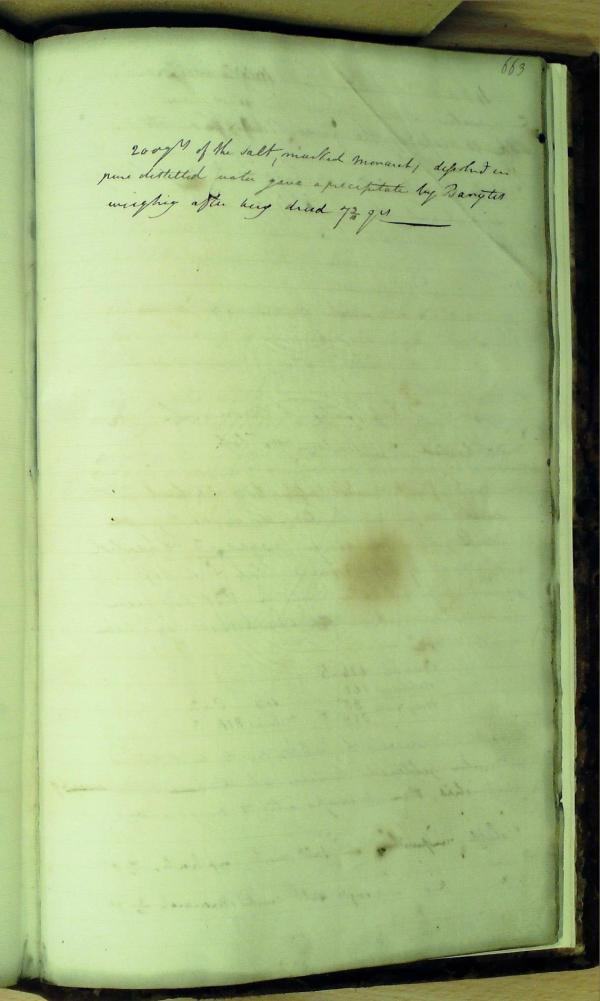 663
200 grs of the salt, marked Monarch, dissolved in
pure distilled water gave a precipitate by Barytes
weighing after being dried grs